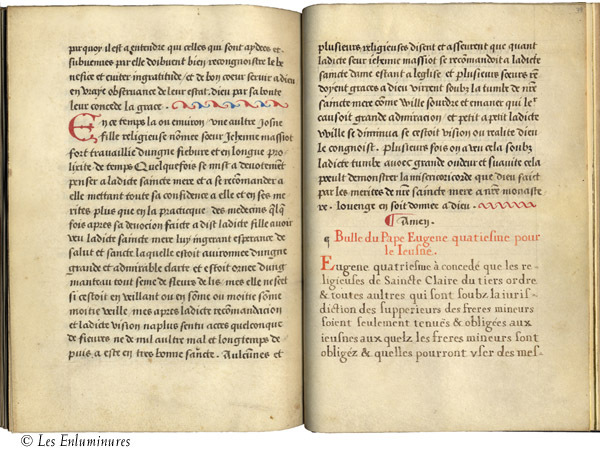 purquoy il est a entendre qui celles qui sont aydees et
subuenues par elle doibuent bien recongnoistre le be
nefice et euiter ingratitude / et de bon coeur seruir a dieu
en vraye obseruance de leur estat. dieu par sa bonte
leur concede la grace.
En ce temps la ou enuiron une aultre josne
fille religieuse nomee soeur Jehenne massiot
fort trauaillie dungne fiebure et en longue pro
lixite de temps Quelquefois se mist a deuotement
penser a ladicte saincte mere et a se recomander a
elle mettant toute sa confidence a elle et en ses me
rites plus que en la practicque des medecins qlq
fois apres sa deuotion faicte a dist ladicte fille auoir
veu ladicte saincte mere luy ingerant esperance de
salut et sancte laquelle estoit auironnee dungne
grande et admirable clarte et estoit ornee dung
manteau tout seme de fleurs de lis. mes elle nescet
si cestoit en veillant ou en some ou moitie some
moitie veille. mes apres ladicte recomandacion
et ladicte vision na plus sentu acces quelconque
de fieures ne de mil aultre mal et longtemps de
puis a este en tres bonne sancte. Aulcunes et
plusieurs religieuses disent et asseurent que quant
ladicte seur iehenne massiot se recomandoit a ladicte
saincte dame estant a leglise et plusieurs soeurs re
doyent graces a dieu virrent soubz la tumbe de nre
saincte mere come wille sourdre et emaner qui le
causoit grande admiration / et petit a petit ladicte
wille se diminua se cestoit vision ou realite dieu
le congnoist. plusieurs fois on a veu cela soubz
ladicte tumbe auoec grande oudeur et suauite cela
preult demonstrer la misericorde que dieu faict
par les merites de nre saincte mere a nre monaste
re. louenge en soit donnee a dieu.
Amen.
Bulle du Pape Eugene quatiesme pour
le Ieusne.
Eugene quatriesme à concedé que les re-
ligieuses de Saincte Claire du tiers ordre
& toutes aultres qui sont soubz la iuris-
diction des supperieurs des freres mineurs
soient seulement tenuës & obligées aux
ieusnes aux quelz les freres mineurs sont
obligéz & quelles pourront vser des mes-
© Les Enluminures